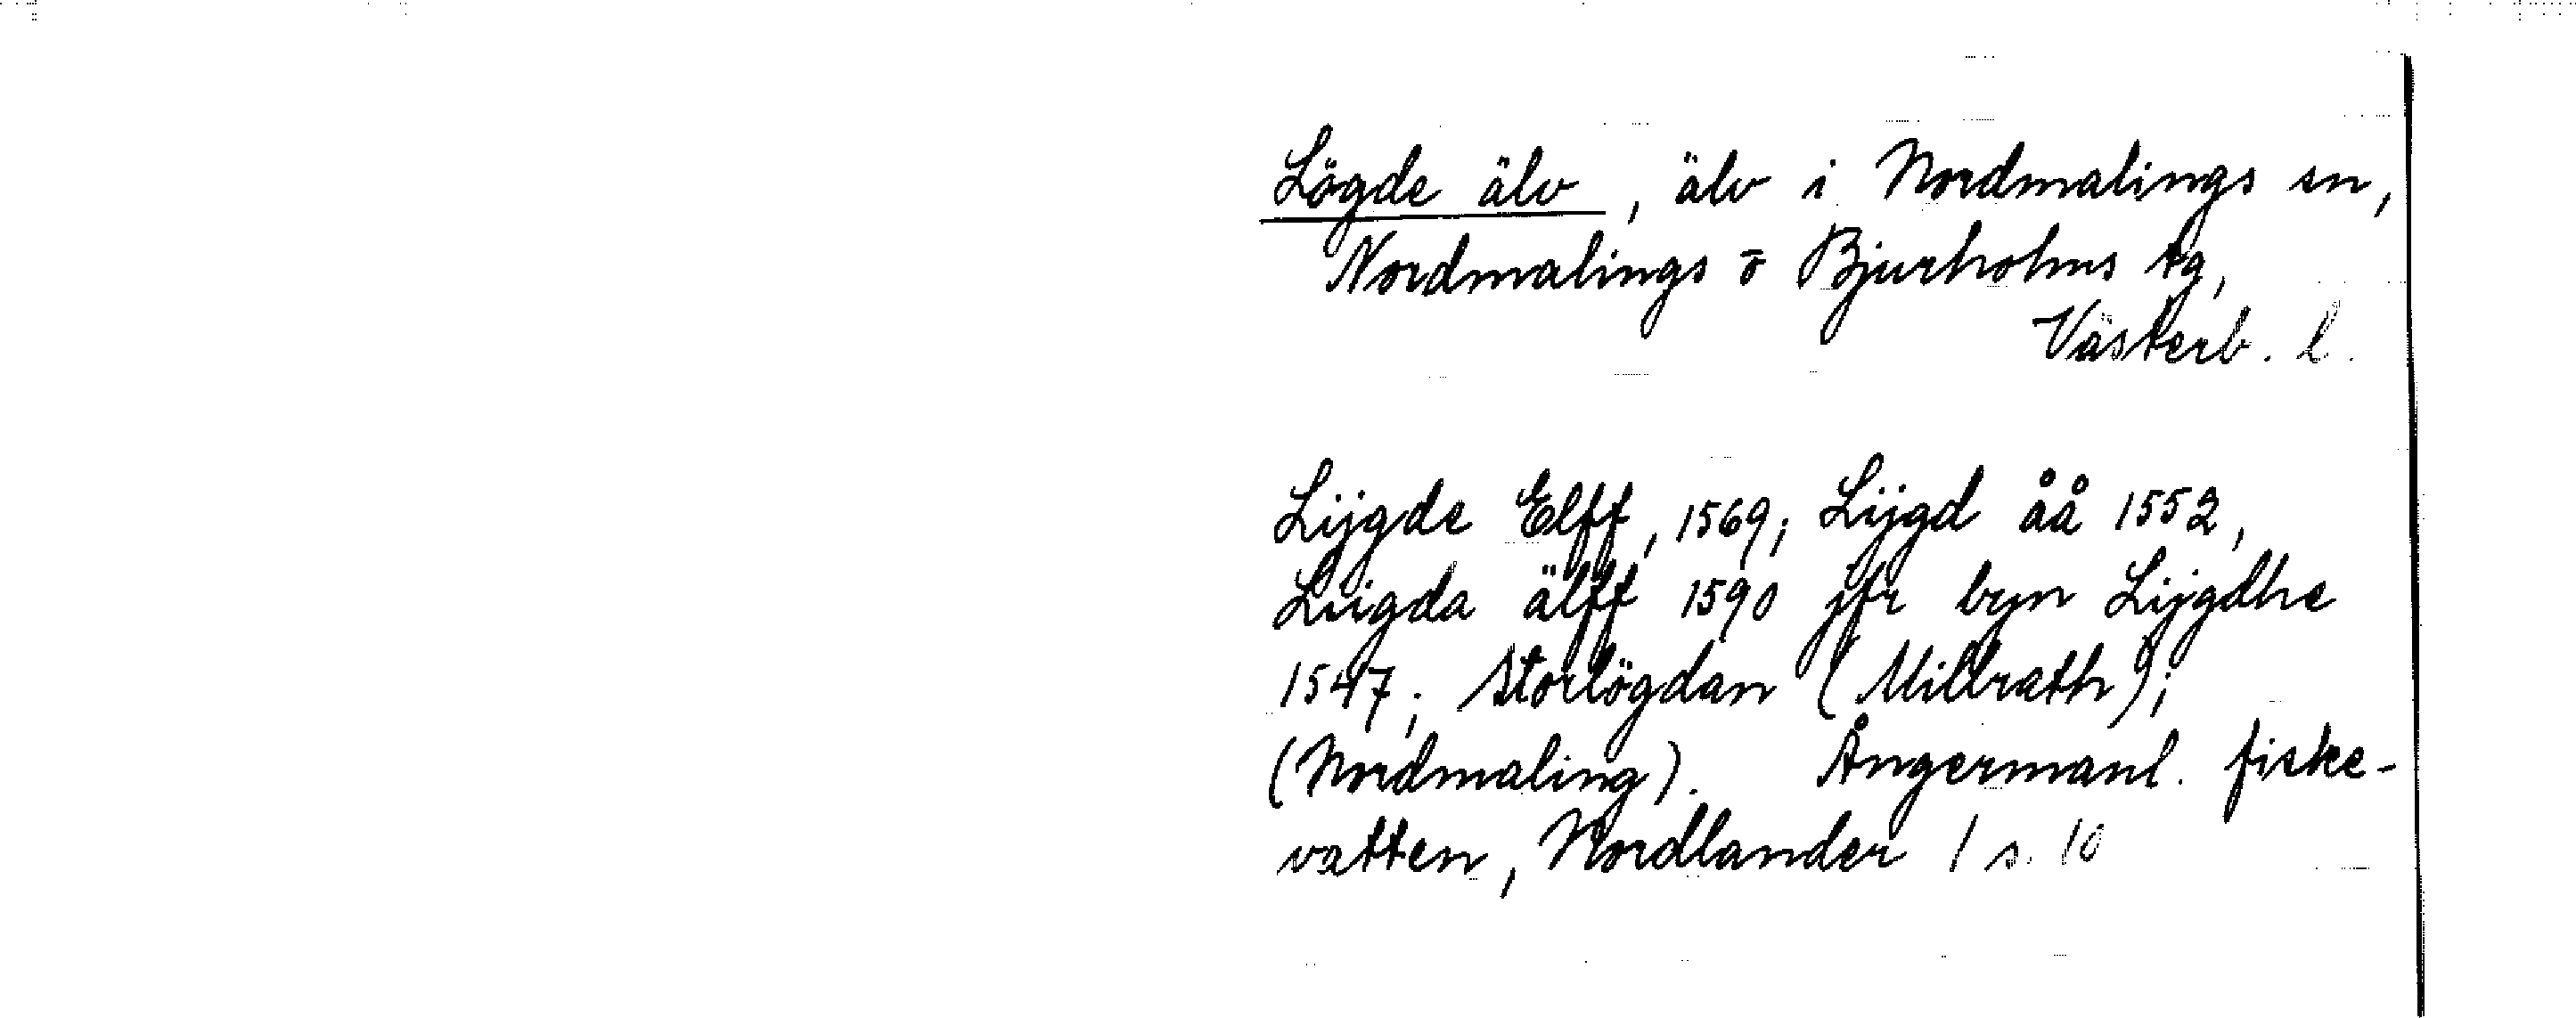 Lögde älv, älv i Nordmalings sn,
Nordmalings o Bjurholms tg,
Västerb. l.
Lijgde Elff, 1569; Lijgd åå 1552,
Liigda älff 1590 jfr byn Lijgdhe
1547; Storlögdan (Millrath);
(Nordmaling). Ångermanl. fiske-
vatten, Nordlander 1 s. 10